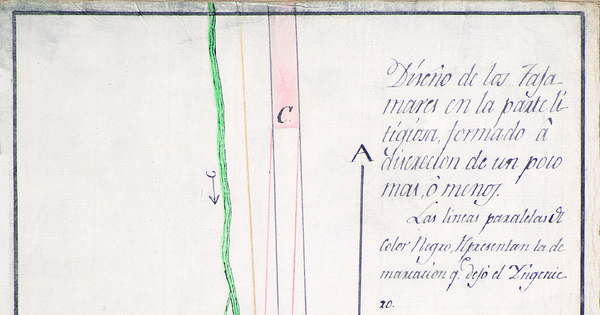 Diseño de los Taja-
mares en la parte li-
tigiosa, formado â
discrecion de un poco
mas, ò menos.
Las lineas paralelas de
Color Negro, Representan la de
marcacion q. dejó el Yngenie-
ro.
C
A
c